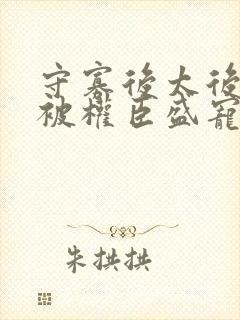 守寡後太後
被權臣盛寵
朱拱拱